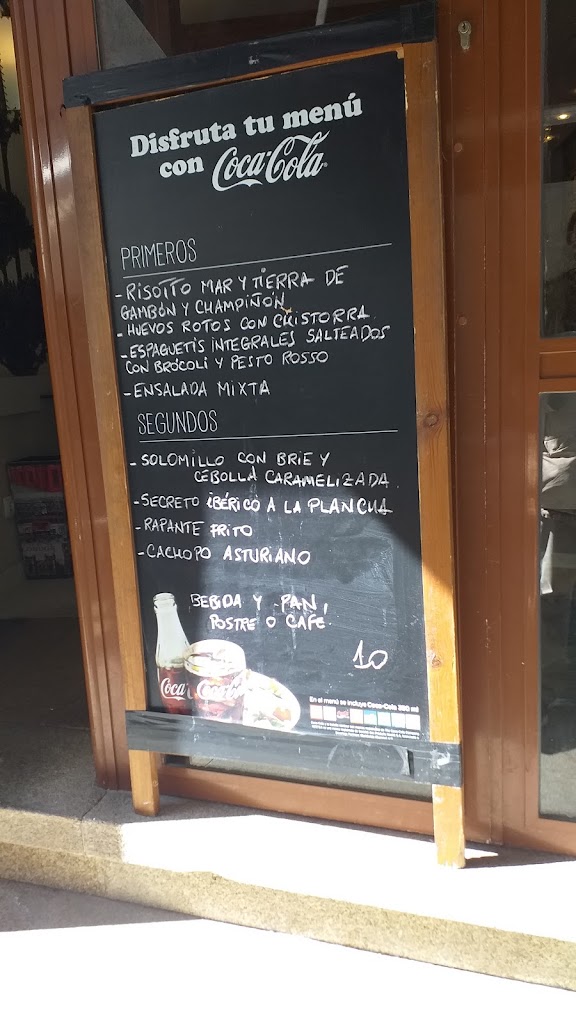 Disfruta tu menú
con Coca-Cola
PRIMEROS
- RISOTTO MAR Y TIERRA DE
GAMBÓN Y CHAMPIÑÓN
- HUEVOS ROTOS CON CHISTORRA
- ESPAGUETIS INTEGRALES SALTEADOS
CON BRÓCOLI Y PESTO ROSSO
- ENSALADA MIXTA
SEGUNDOS
- SOLOMILLO CON BRIE Y
CEBOLLA CARAMELIZADA
- SECRETO IBÉRICO A LA PLANCHA
- RAPANTE FRITO
- CACHOPO ASTURIANO
BEBIDA Y PAN,
POSTRE O CAFE
10
En el menú se incluye Coca-Cola